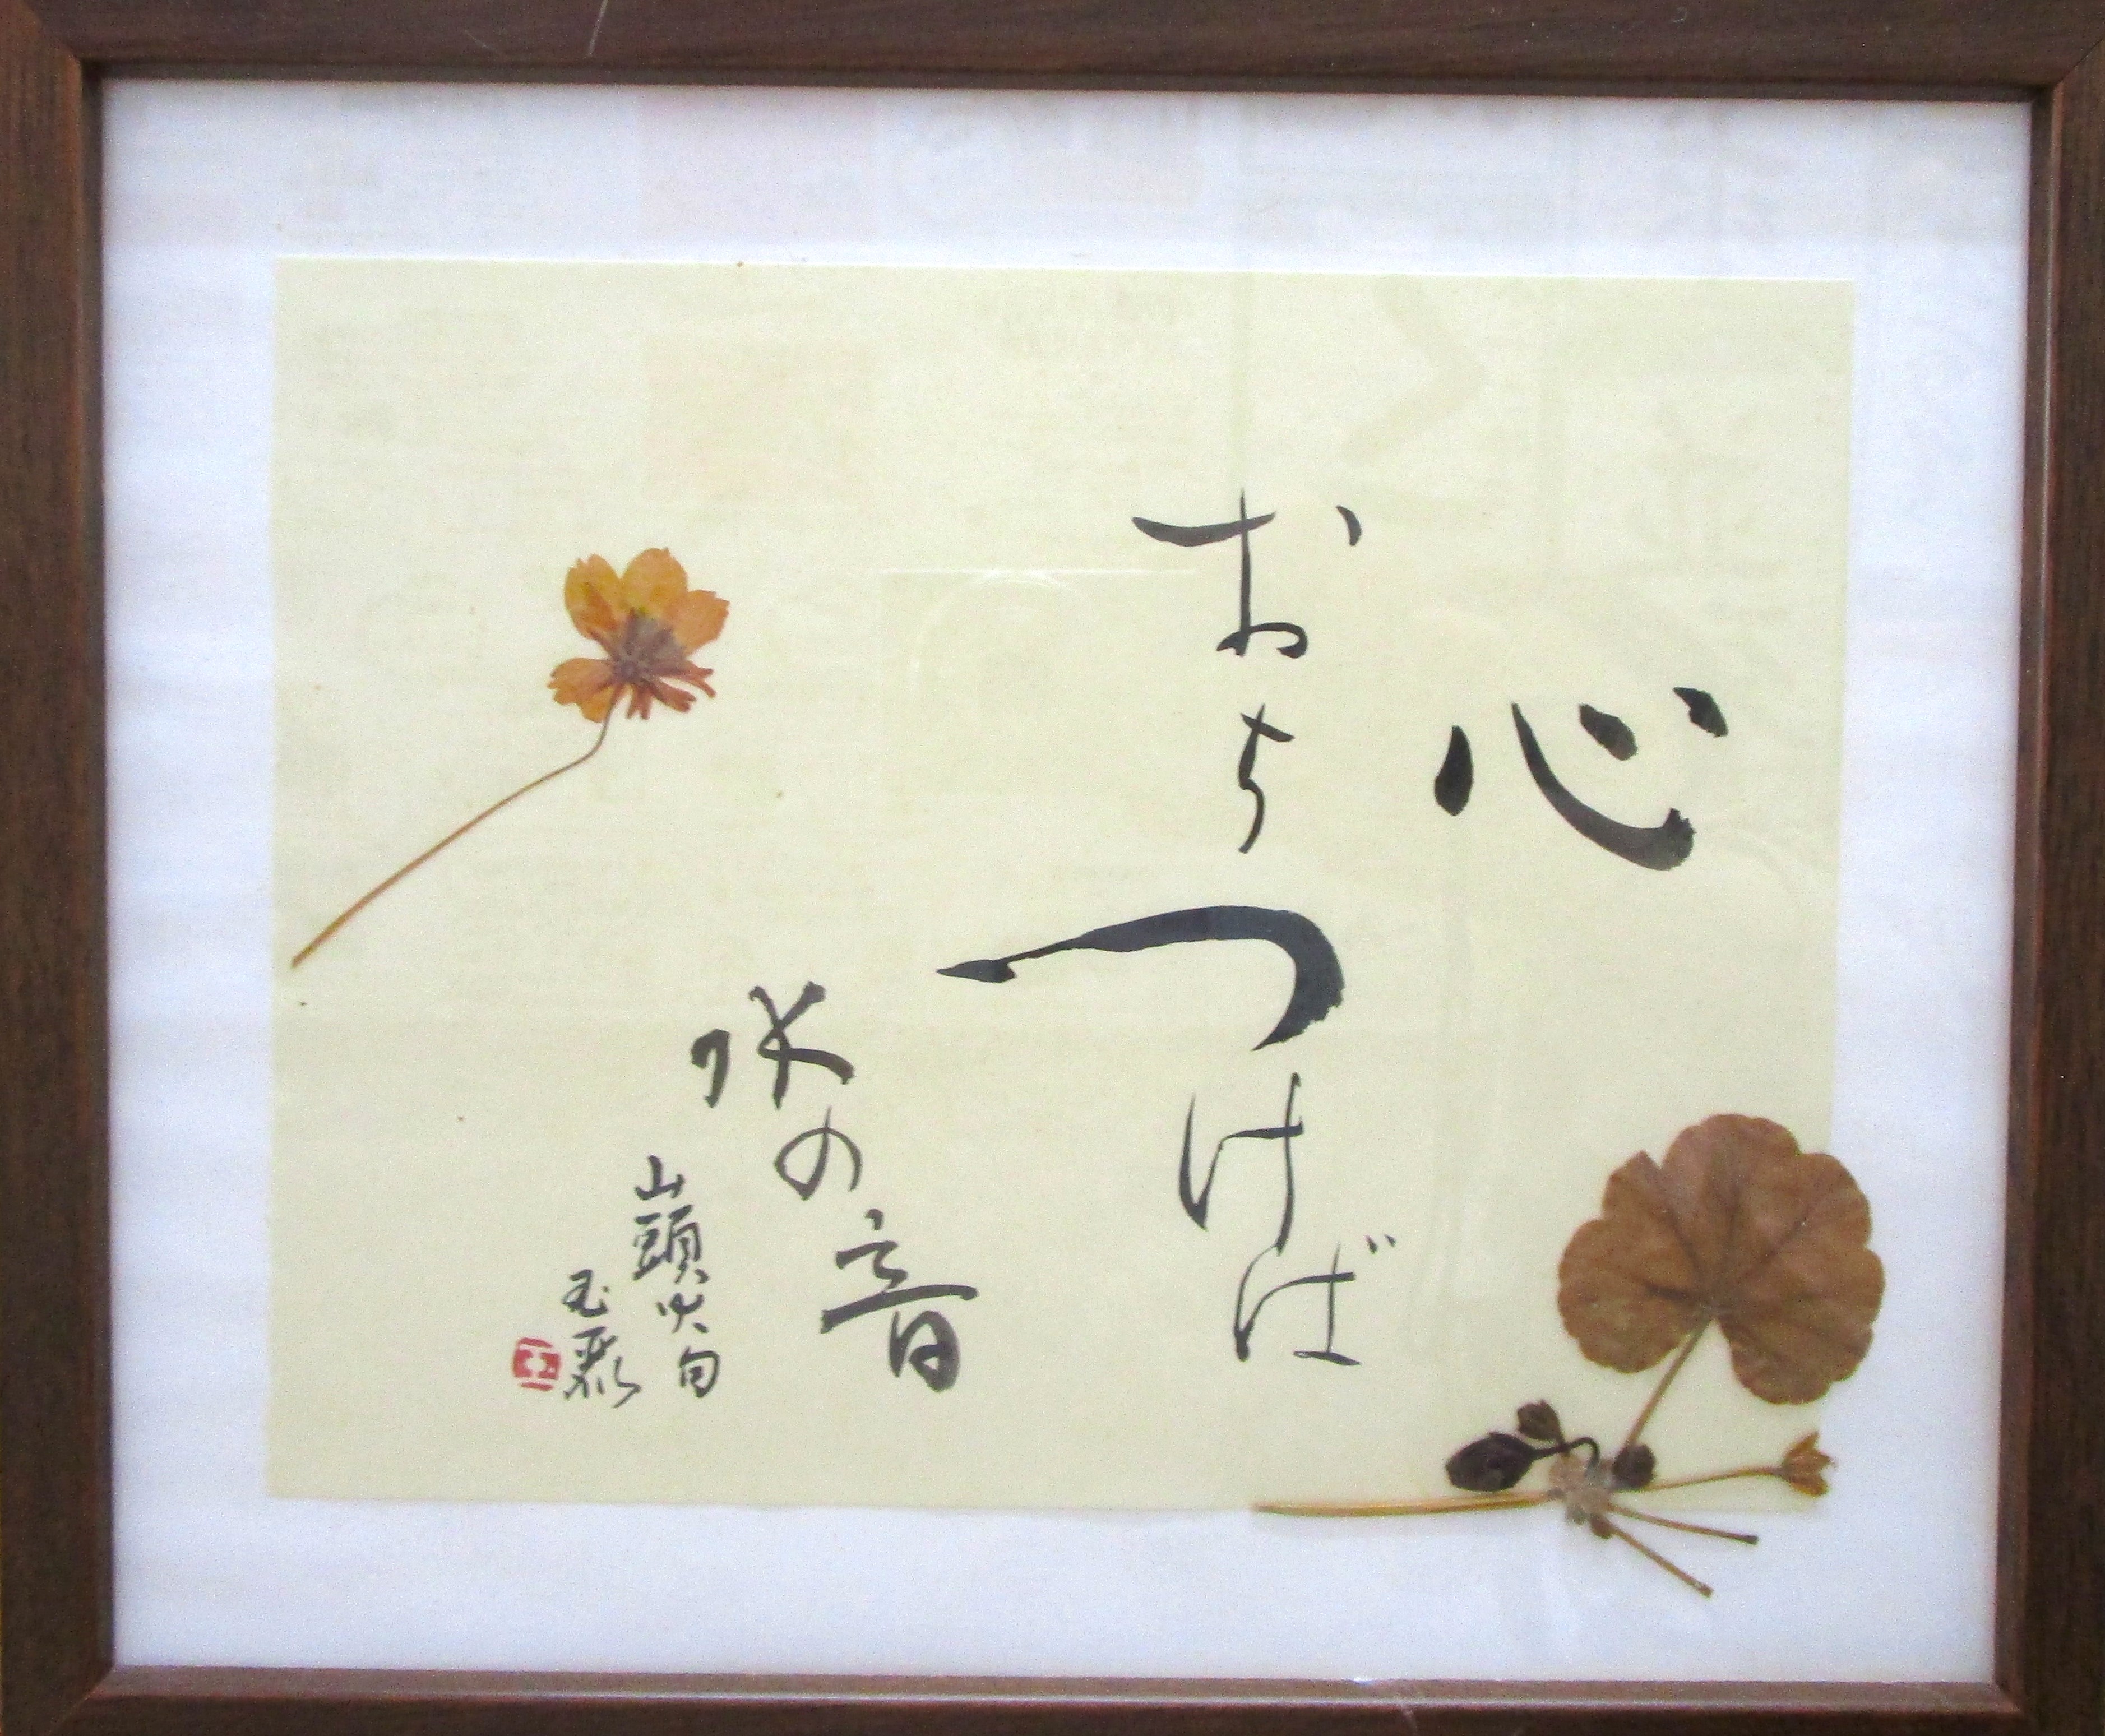 心
おちつけば
水の音
山頭火句